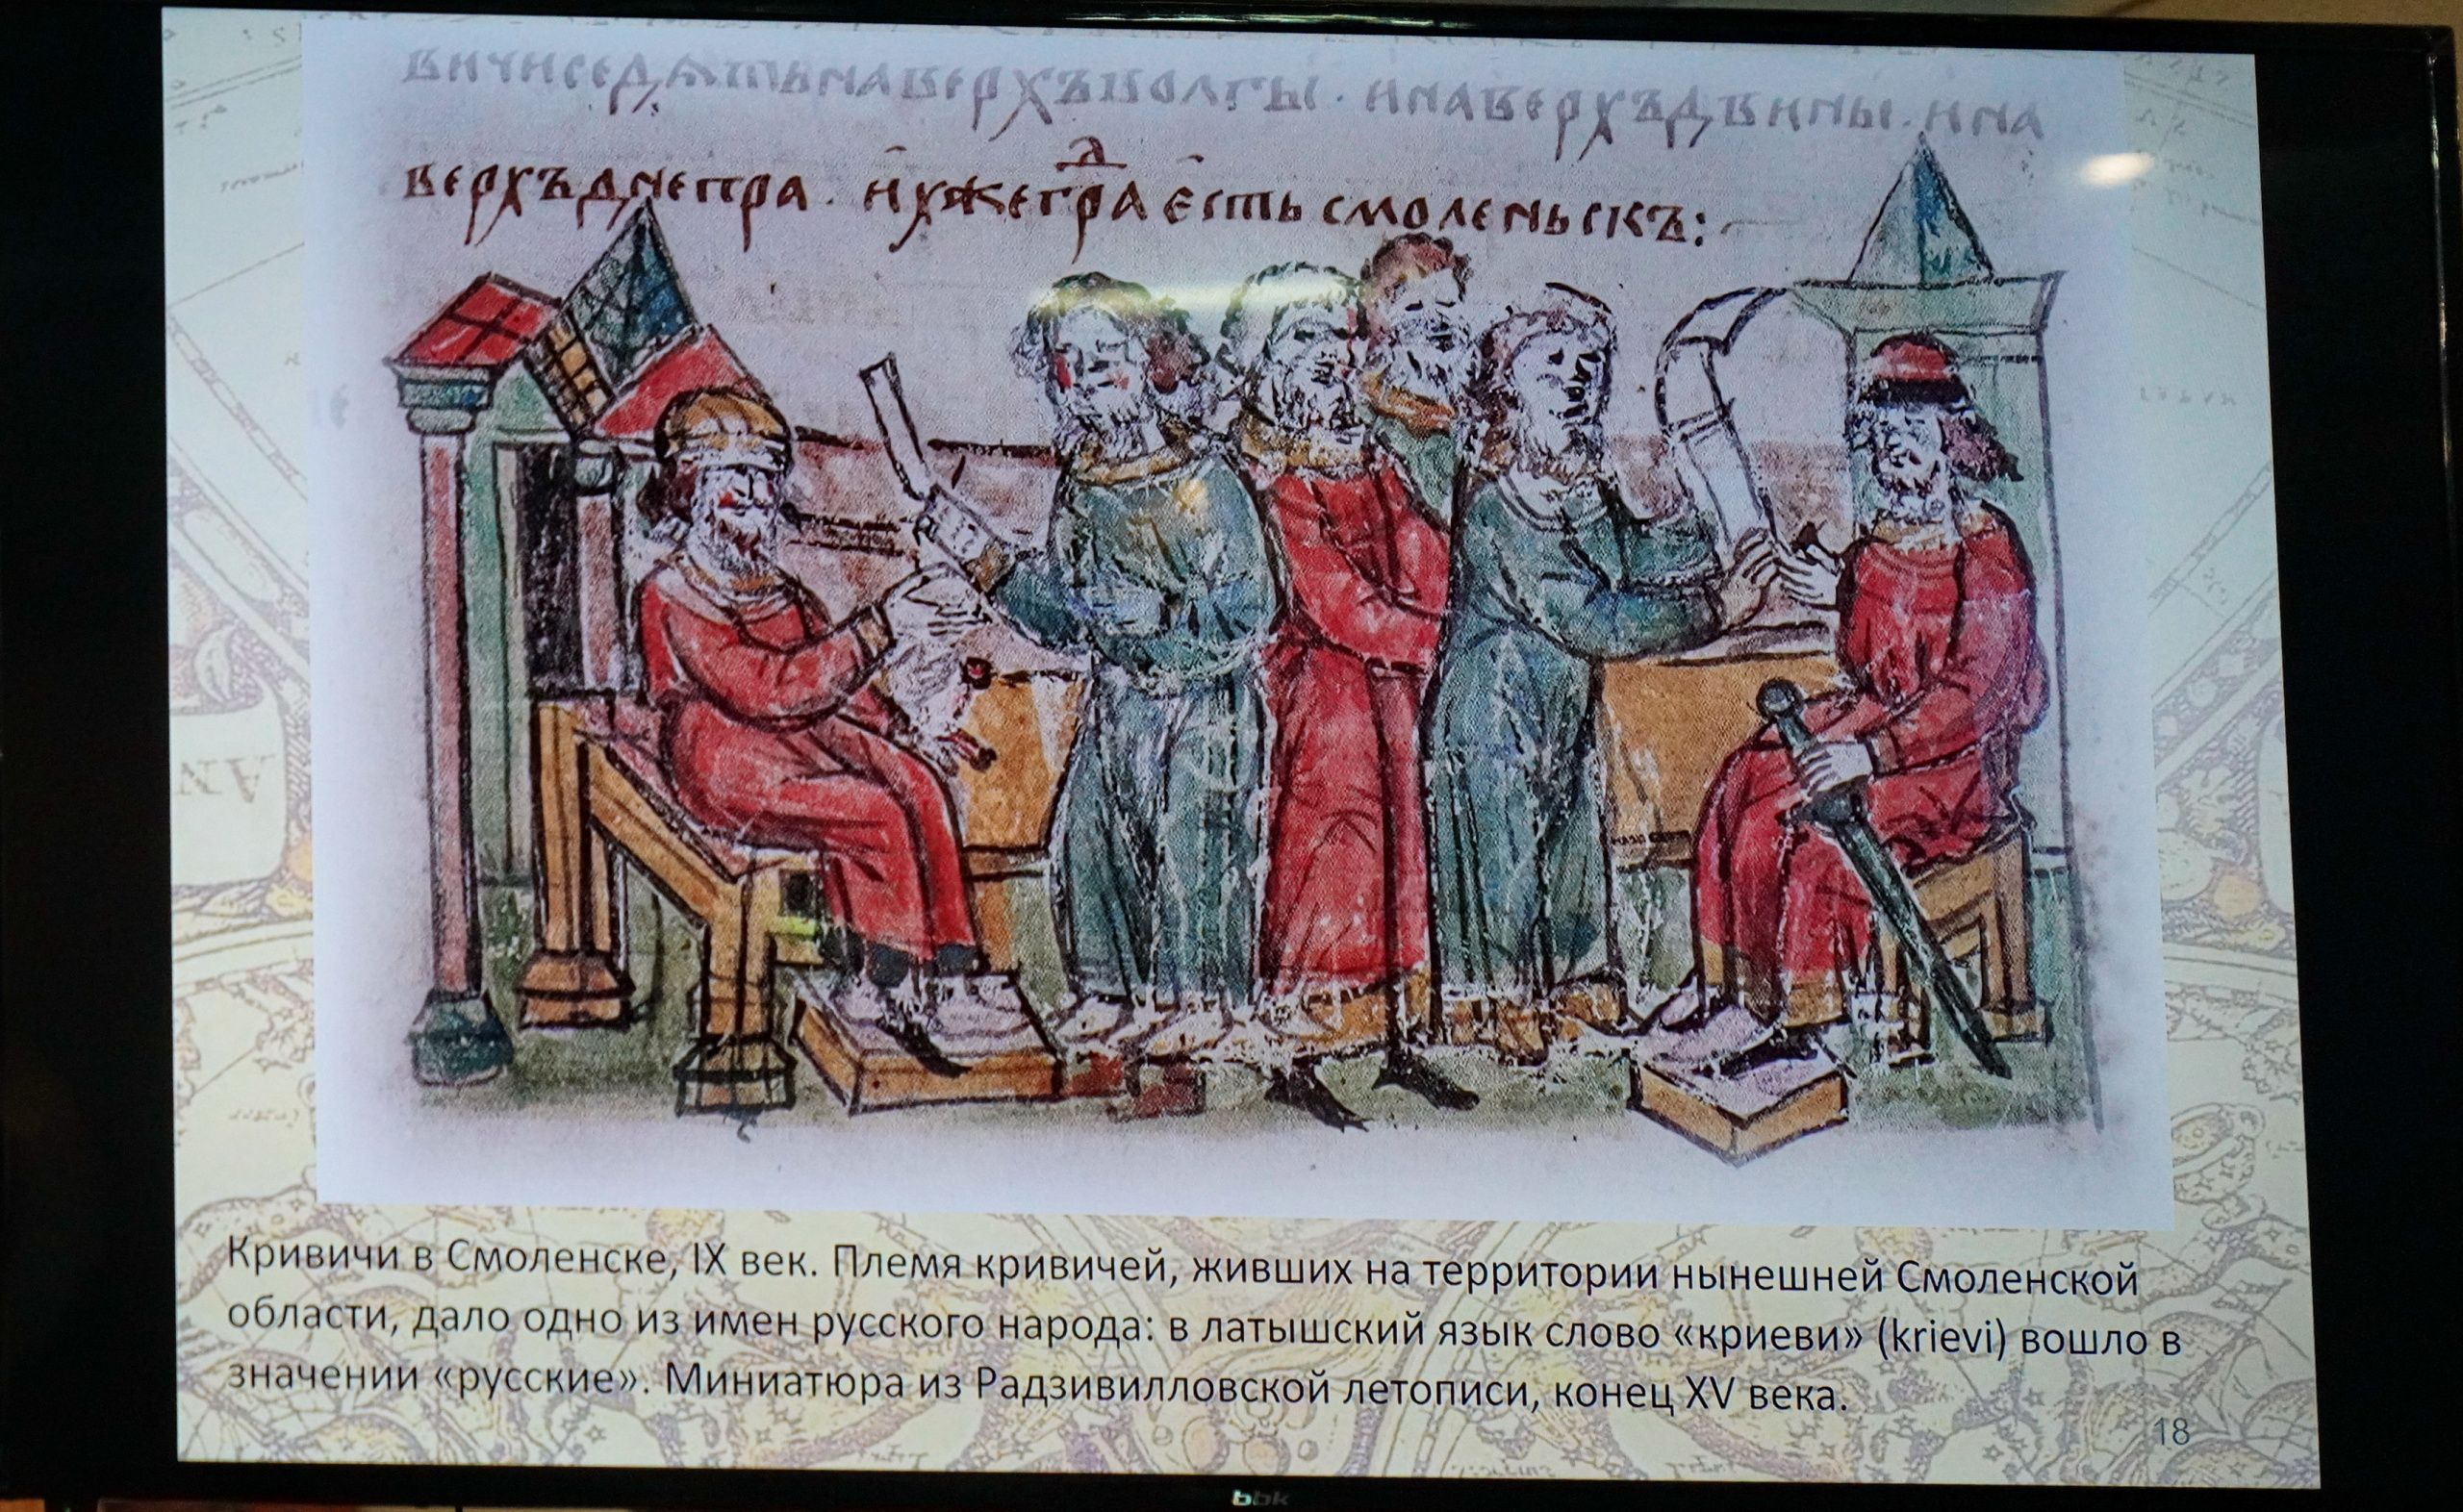 вичиседѧтьнаверхъволгы · инаверхъдвины · ина
верхъднепра · иXжегрⷣа есть смоленьскъ:
Кривичи в Смоленске, IX век. Племя кривичей, живших на территории нынешней Смоленской
области, дало одно из имен русского народа: в латышский язык слово «криеви» (krievi) вошло в
значении «русские». Миниатюра из Радзивилловской летописи, конец XV века.
18
bbk